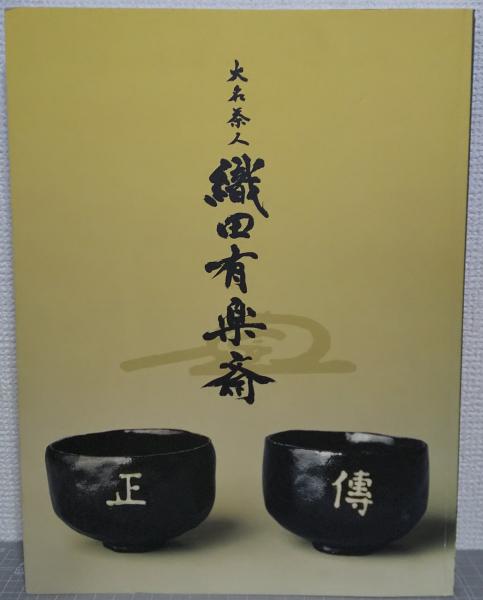 大名茶人
織田有楽斎
正
傳